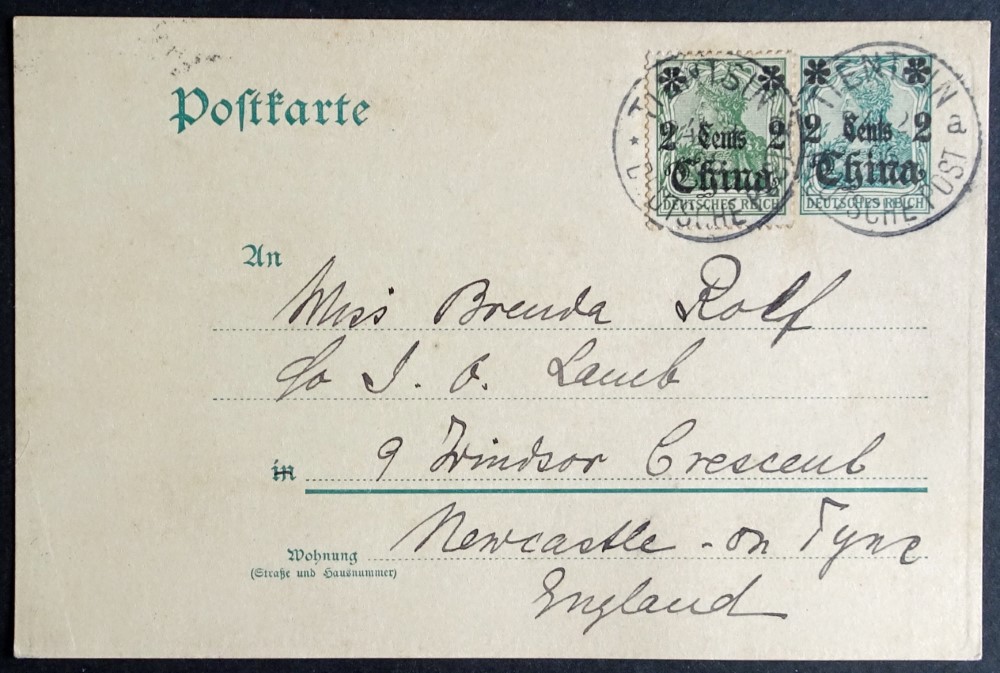 Postkarte
2 Cents 2
China
DEUTSCHES REICH
2 Cents 2
China
DEUTSCHES REICH
TIENTSIN
DEUTSCHE POST
TIENTSIN a
DEUTSCHE POST
An
Miss Brenda Rolf
c/o J. O. Lamb
in
9 Windsor Crescent
Newcastle - on Tyne
Wohnung
(Straße und Hausnummer)
England